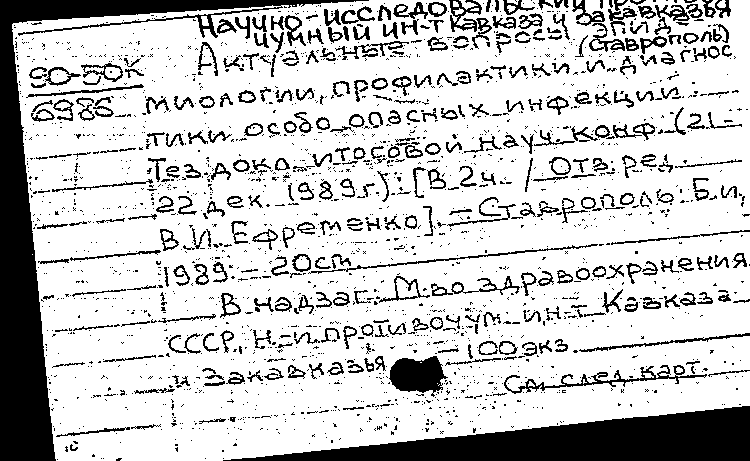 Научно-исследовательский про
чумный ин-т Кавказа и Закавказья
(Ставрополь)
Актуальные вопросы эпиде
90-50к
6986
миологии, профилактики и диагнос
тики особо опасных инфекций:
Тез. докл. итоговой науч. конф. (21-
22 дек. 1989 г.): [В 2 ч. / Отв. ред.
В.И. Ефременко]. – Ставрополь: Б.и.,
1989. – 20 cm.
В надзаг.: М-во здравоохранения
СССР, Н.-и. противочум. ин-т Кавказа
и Закавказья – 100 экз.
См. след. карт.